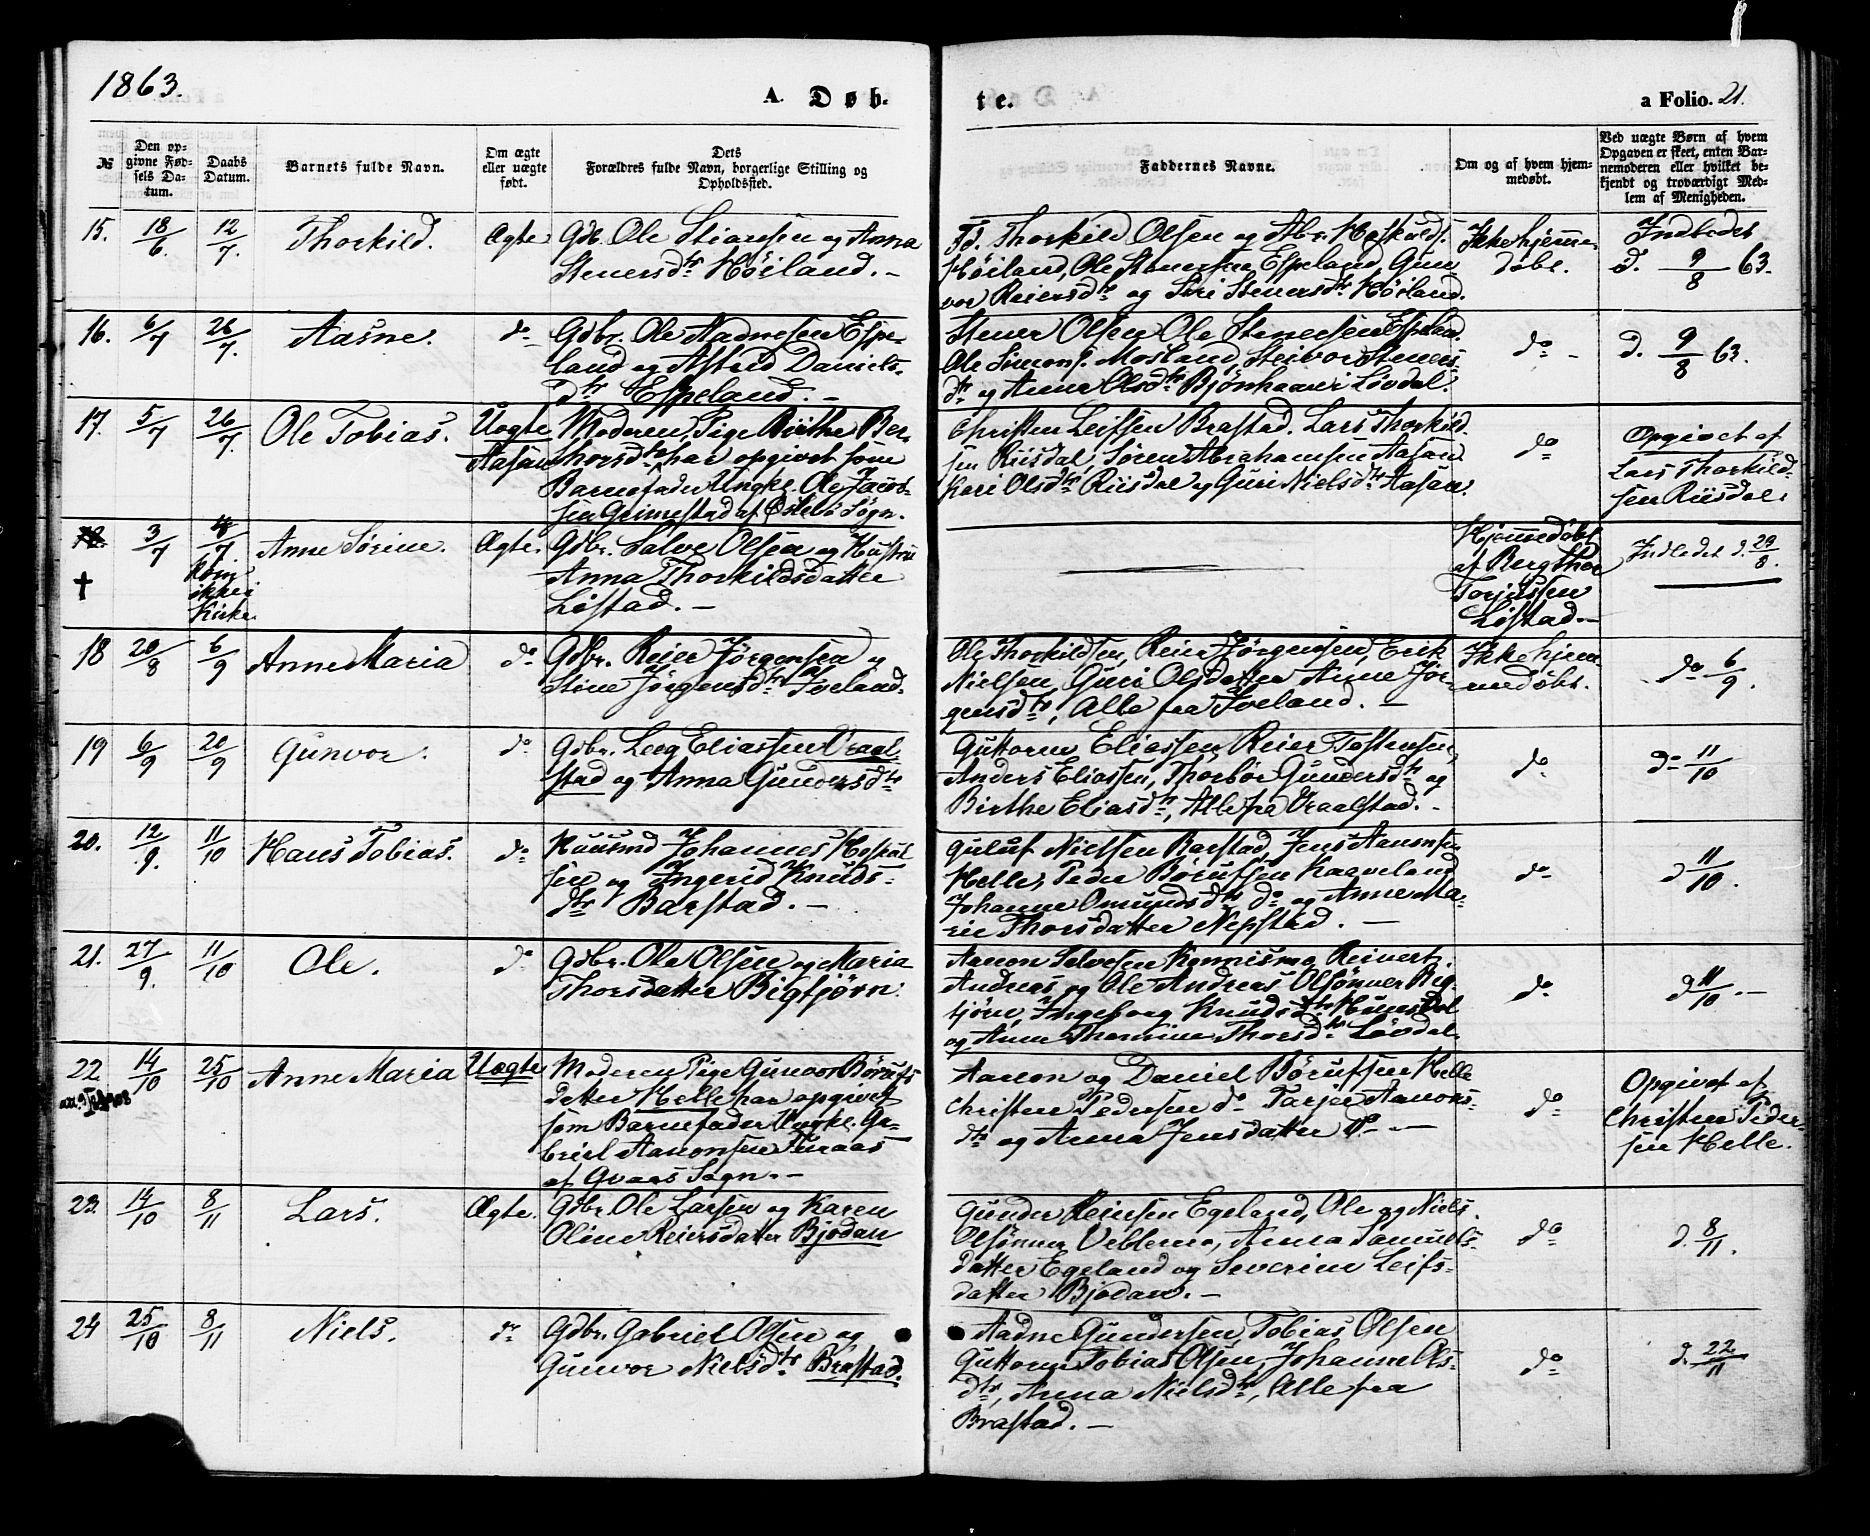 1863.
A. Døb-
te.
a Folio. 21.
№
Den op-
givne Fød-
sels Da-
tum.
Daabs
Datum.
Barnets fulde Navn.
Om ægte
eller uægte
født.
Dets
Forældres fulde Navn, borgerlige Stilling og
Opholdssted.
Faddernes Navne.
Om og af hvem hjem-
medøbt.
Ved uægte Børn af hvem
Opgaven er skeet, enten Bar-
nemoderen eller hvilket be-
kjendt og troværdigt Med-
lem af Menigheden.
15. 18/6. 12/7. Thorkild. Ægte
Gdb. Ole Stiansen og Anna
Stenersdtr Høiland. -
Fd. Thorkild Olsen og Abr.
Høiland, Ole Stenersen Espeland, Gun-
vor Reiersdtr og Siri Stenersdtr Høiland.
Ikke hjemme-
døbt.
Indledet
d. 9/8 63.
16. 6/7 26/7. Aasne. do
Gdbr. Ole Aadnesen Espe-
land og Astrid Daniels-
dtr Espeland. -
Stener Olsen Ole Stenersen Espeland
Ole Simons. Mosland, Steivor Steners-
dtr og Anne Olsdtr Løvdal.
do -
d. 9/8 63.
17. 5/7 26/7. Ole Tobias. Uægte
Aasan
Moderen, Pige Birthe Ber-
thorsdtr har opgivet som
Barnefader Ungkl. Ole Jacob-
sen Grimestad af Sogn.
Christen Leifsen Brastad. Lars Thorkild-
sen Riisdal, Søren Abrahamsen Aasan
Kari Olsdtr Riisdal og Guri Nielsdtr Aasan.
do
Opgivet af
Lars Thorkild-
sen Riisdal.
18. 3/7 /7 Anne Sørine. Ægte.
†
ikke i
Kirke.
Gdbr. Salve Olsen og Hustru
Anna Thorkildsdatter
Løstad. -
Hjemmedøbt
af Bergthor
Torjussen
Løstad. -
Indledet d. 29/8.
18 20/8 6/9 Anne Maria do
Gdbr. Reier Jørgensen og
Stine Jørgensdtr Iveland.
Ole Thorkildsen, Reier Jørgensen, Erik
Nielsen, Guri Olsdatter Anne Jør-
gensdtr, Alle fra Iveland. -
Ikke hjem-
medøbt.
do 6/9.
19 6/9 20/9 Gunvor. do
Gdbr. Leeg Eliassen Vraal-
stad og Anna Gunversdtr
Guttorm Eliassen, Reier Tostensen,
Anders Eliassen, Thorbør Gundersdtr og
Birthe Eliasdtr, Alle fra Vraalstad. -
do
d 11/10
20. 12/9. 11/10 Hans Tobias. do
Huusmd Johannes Hoskul-
sen og Ingerid Knuds-
dtr Barstad. -
Guluf Nielsen Barstad, Jens Aanonsen
Helle, Peder Børufsen Kaaveland
Johanne Omundsdtr do og Anne Ma-
rie Thorsdatter Nepstad. -
do
d 11/10.
21. 27/9. 11/10 Ole. do
Gdbr. Ole Olsen og Maria
Thorsdatter Bigtjørn.
Aanon Salvesen Reiert
Andreas og Ole Andreas Olsønner Big-
tjørn, Ingeborg Knudsdtr Hunsdal
og Anne Thomine Thorsdtr Løvdal
do
d 11/10. -
22 14/10 25/10 Anne Maria Uægte
Moderen Pige Gunvor Børufs
datter Helle har opgivet
som Barnefader Ungkl. Ga-
briel Aanonsen Turaas
af Qvaas Sogn. -
Aanon og Daniel Børufsen Helle
Christen Pedersen do Tarjer Aanons-
dtr og Anna Jensdatter do -
do
Opgivet af
Christen Peder-
sen Helle.
23. 14/10 8/11 Lars. Ægte.
Gdbr. Ole Larsen og Karen
Oline Reiersdatter Bjodan
Gunder Reiersen Egeland, Ole og Niels
Olsønner Vehlemo, Anna Samuels-
datter Egeland og Severine Leifs-
datter Bjodan. -
do
d. 8/11.
24 25/10 8/11 Niels. do
Gdbr. Gabriel Olsen og
Gunvor Nielsdtr Brastad.
Aadne Gundersen, Tobias Olsen
Guttorm Tobias Olsen, Johanne Ols-
dtr, Anna Nielsdtr, Alle fra
Brastad. -
do
d. 22/11